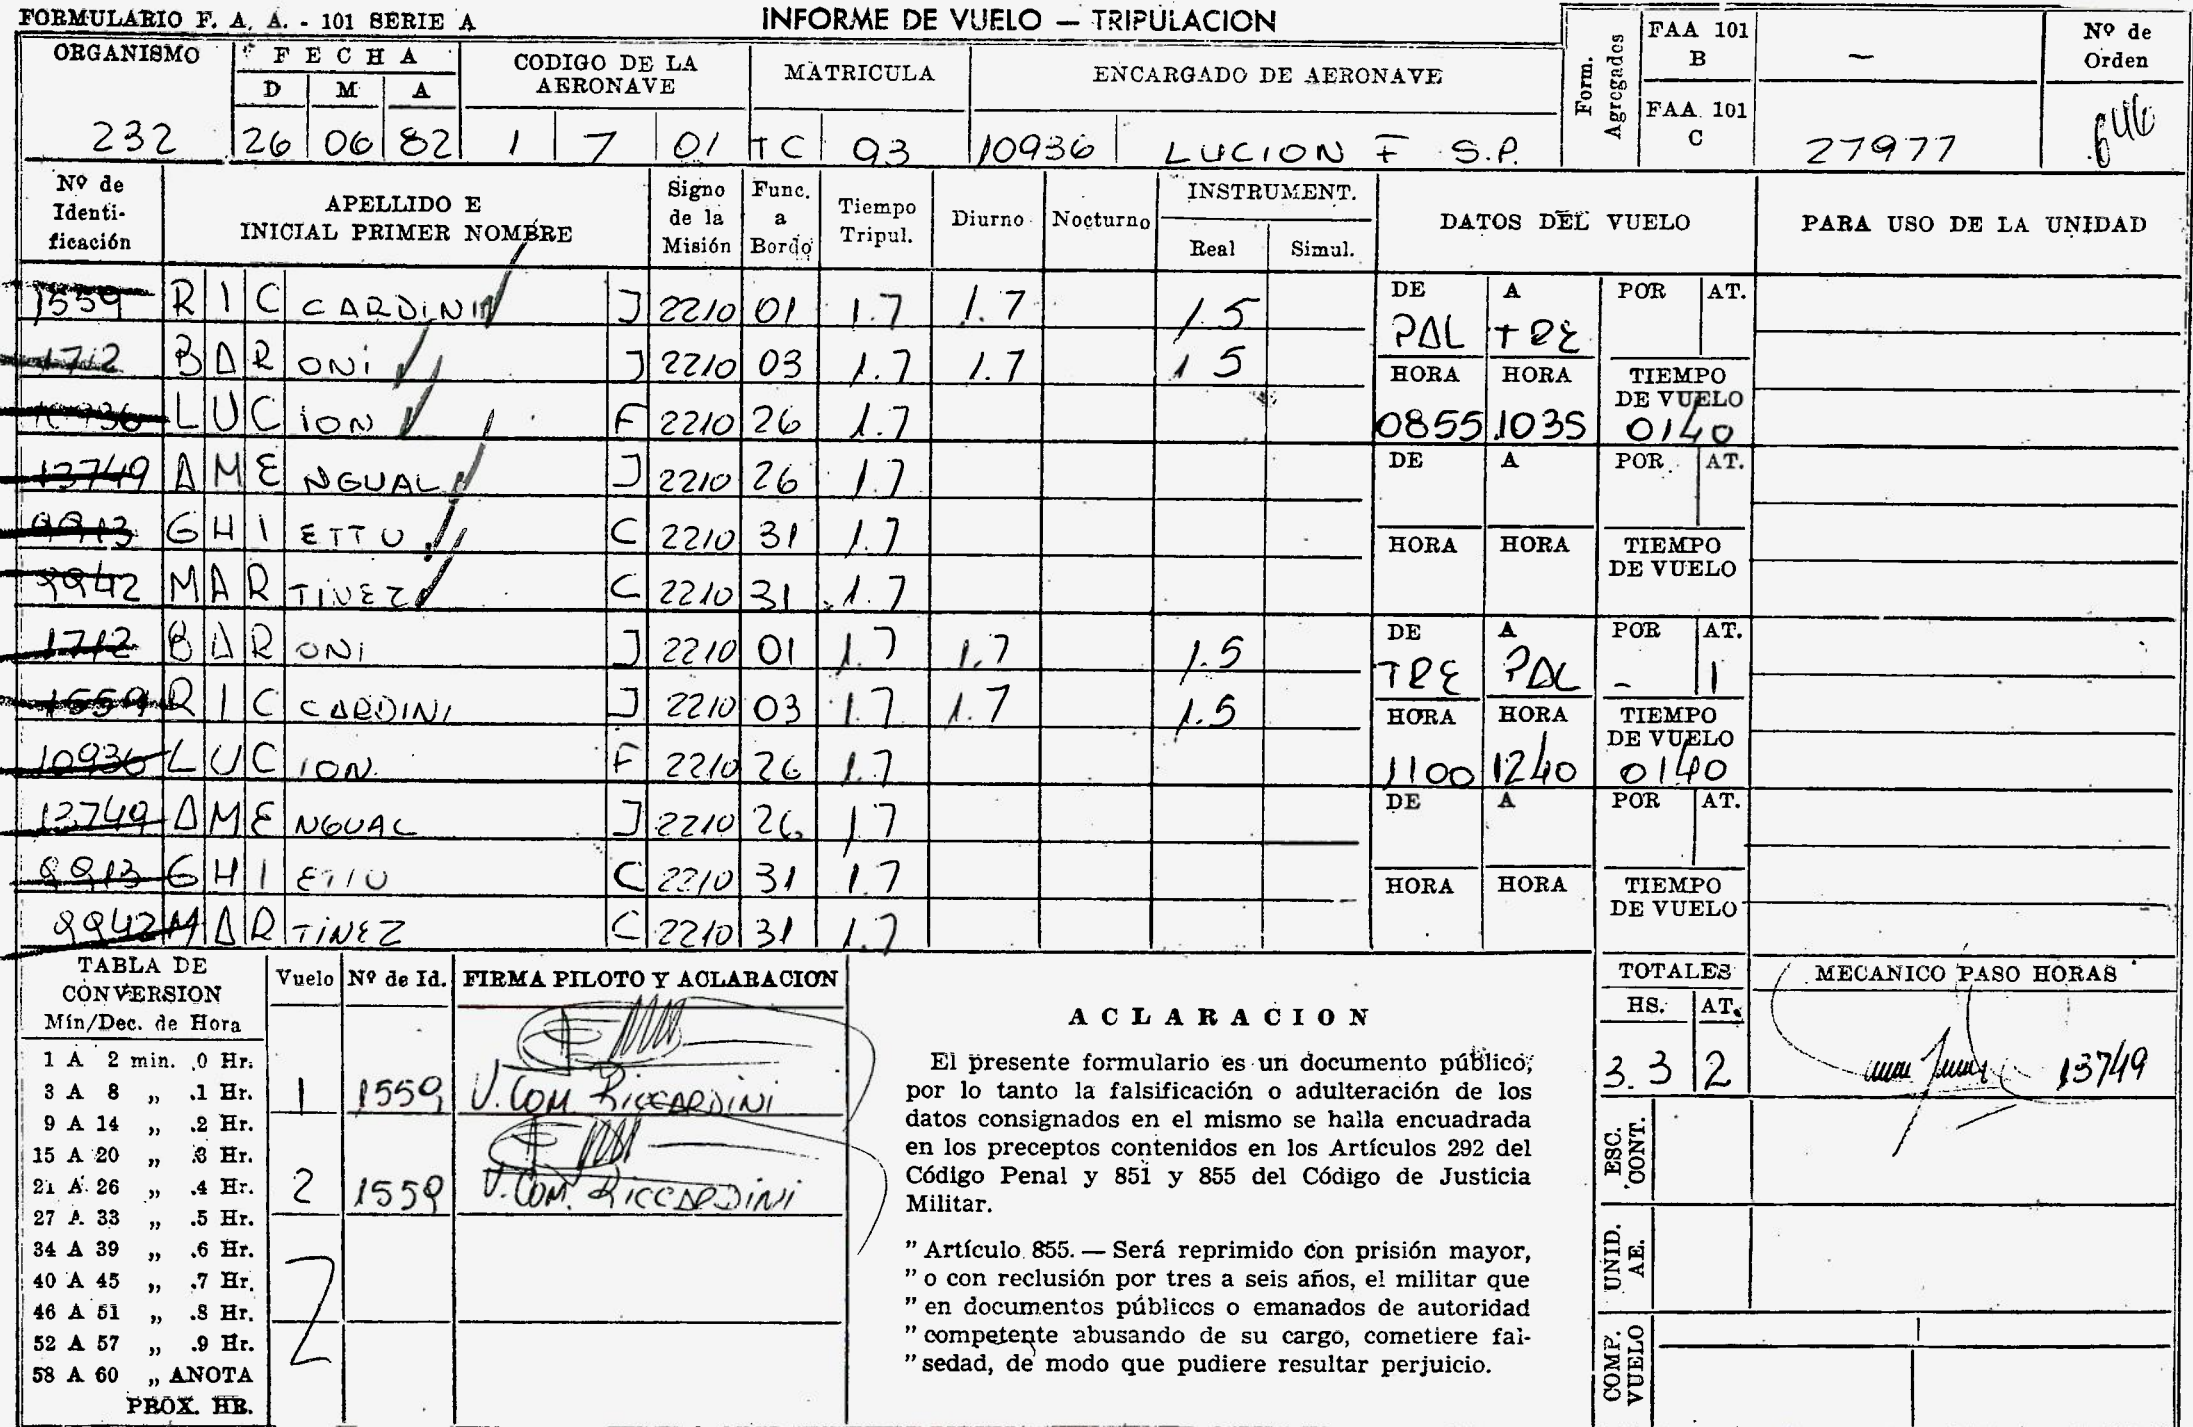 FORMULARIO F. A. A. - 101 SERIE A
INFORME DE VUELO — TRIPULACION
ORGANISMO
FECHA
D M A
CODIGO DE LA AERONAVE
MATRICULA
ENCARGADO DE AERONAVE
Form. Agregados
FAA 101 B
—
FAA 101 C
27977
Nº de Orden
646
232 26 06 82 1 7 01 TC 93 10936 LUCION F S.P.
Nº de Identificación
APELLIDO E INICIAL PRIMER NOMBRE
Signo de la Misión
Func. a Bordo
Tiempo Tripul.
Diurno
Nocturno
INSTRUMENT.
Real Simul.
DATOS DEL VUELO
PARA USO DE LA UNIDAD
1559 RICCARDINI J 2210 01 1.7 1.7 1.5
1712 BARONI J 2210 03 1.7 1.7 1 5
10936 LUCION F 2210 26 1.7
13749 AMENGUAL J 2210 26 1.7
9913 GHIETTO C 2210 31 1.7
9942 MARTINEZ C 2210 31 1.7
1712 BARONI J 2210 01 1.7 1.7 1.5
1559 RICCARDINI J 2210 03 1.7 1.7 1.5
10936 LUCION F 2210 26 1.7
13749 AMENGUAL J 2210 26 1.7
9913 GHIETTO C 2210 31 1.7
9942 MARTINEZ C 2210 31 1.7
DE A POR AT.
PAL TRE
HORA HORA TIEMPO DE VUELO
0855 1035 0140
DE A POR AT.
HORA HORA TIEMPO DE VUELO
DE A POR AT.
TRE PAL - 1
HORA HORA TIEMPO DE VUELO
1100 1240 0140
DE A POR AT.
HORA HORA TIEMPO DE VUELO
TABLA DE CONVERSION
Mín/Dec. de Hora
1 A 2 min. .0 Hr.
3 A 8 „ .1 Hr.
9 A 14 „ .2 Hr.
15 A 20 „ .3 Hr.
21 A 26 „ .4 Hr.
27 A 33 „ .5 Hr.
34 A 39 „ .6 Hr.
40 A 45 „ .7 Hr.
46 A 51 „ .8 Hr.
52 A 57 „ .9 Hr.
58 A 60 „ ANOTA
PROX. HR.
Vuelo Nº de Id. FIRMA PILOTO Y ACLARACION
1 1559 V. COM RICCARDINI
2 1559 V. COM. RICCARDINI
ACLARACION
El presente formulario es un documento público,
por lo tanto la falsificación o adulteración de los
datos consignados en el mismo se halla encuadrada
en los preceptos contenidos en los Artículos 292 del
Código Penal y 851 y 855 del Código de Justicia
Militar.
" Artículo 855. — Será reprimido con prisión mayor,
" o con reclusión por tres a seis años, el militar que
" en documentos públicos o emanados de autoridad
" competente abusando de su cargo, cometiere fal-
" sedad, de modo que pudiere resultar perjuicio.
TOTALES
HS. AT.
3.3 2
MECANICO PASO HORAS
13749
ESC. CONT.
UNID. AE.
COMP. VUELO